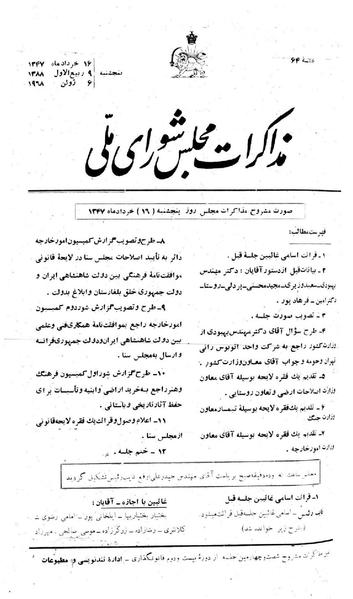 جلسهٔ ۶۴
پنجشنبه
۱۶ خرداد ماه ۱۳۴۷
۹ ربیع الاول ۱۳۸۸
۶ ژوئن ۱۹۶۸
مذاکرات مجلس شورای ملی
صورت مشروح مذاکرات مجلس روز پنجشنبه (۱۶) خرداد ماه ۱۳۴۷
فهرست مطالب:
۱- قرائت اسامی غائبین جلسه قبل.
۲- بیانات قبل از دستور آقایان: دکتر مهندس
بهبودی- سعید وزیری- مجید محسنی- پردلی- روستا-
دکتر امین- فرهاد پور.
۳- تصویب صورت جلسه.
۴- طرح سؤال آقای دکتر مهندس بهبودی از
وزارت کشور راجع به شرکت واحد اتوبوس رانی
تهران و حومه و جواب آقای معاون وزارت کشور.
۵- تقدیم یک فقره لایحه بوسیله آقای معاون
وزارت اصلاحات ارضی و تعاون روستائی.
۶- تقدیم یک فقره لایحه بوسیله تیمسار معاون
وزارت جنگ
۷- تقدیم یک فقره لایحه بوسیله آقای معاون
وزارت امور خارجه.
۸- طرح و تصویب گزارش کمیسیون امور خارجه
دائر به تأیید اصلاحات مجلس سنا در لایحهٔ قانونی
موافقت نامهٔ فرهنگی بین دولت شاهنشاهی ایران و
دولت جمهوری خلق بلغارستان و ابلاغ به دولت.
۹- طرح و تصویب گزارش شور دوم کمیسیون
امور خارجه راجع به موافقت نامهٔ همکاری فنی و علمی
بین دولت شاهنشاهی ایران و دولت جمهوری فرانسه
و ارسال به مجلس سنا.
۱۰- طرح گزارش شور اول کمیسیون فرهنگ
و هنر راجع به خرید اراضی و ابنیه و تأسیسات برای
حفظ آثار تاریخی و باستانی.
۱۱- اعلام وصول و قرائت یک فقره لایحه قانونی
از مجلس سنا.
۱۲- ختم جلسه.
مجلس ساعت نه و دقیقه صبح بریاست آقای مهندس تشکیل گردید
۱- قرائت اسامی غائبین جلسه قبل
نایب رئیس- اسامی غائبین جلسه قبل قرائت میشود
(بشرح زیر خوانده شد)
غائبین با اجازه- آقایان:
بختیار بختیاریها- ایلخانی پور- امامی رضوی-
کلانتری- رضازاده- زرگرزاده- موسی صالحی- مهرزاد
متن مذاکرات مشروح شصت و چهارمین جلسه از دورهٔ بیست و دوم قانونگذاری- ادارهٔ تندنویسی و مطبوعات